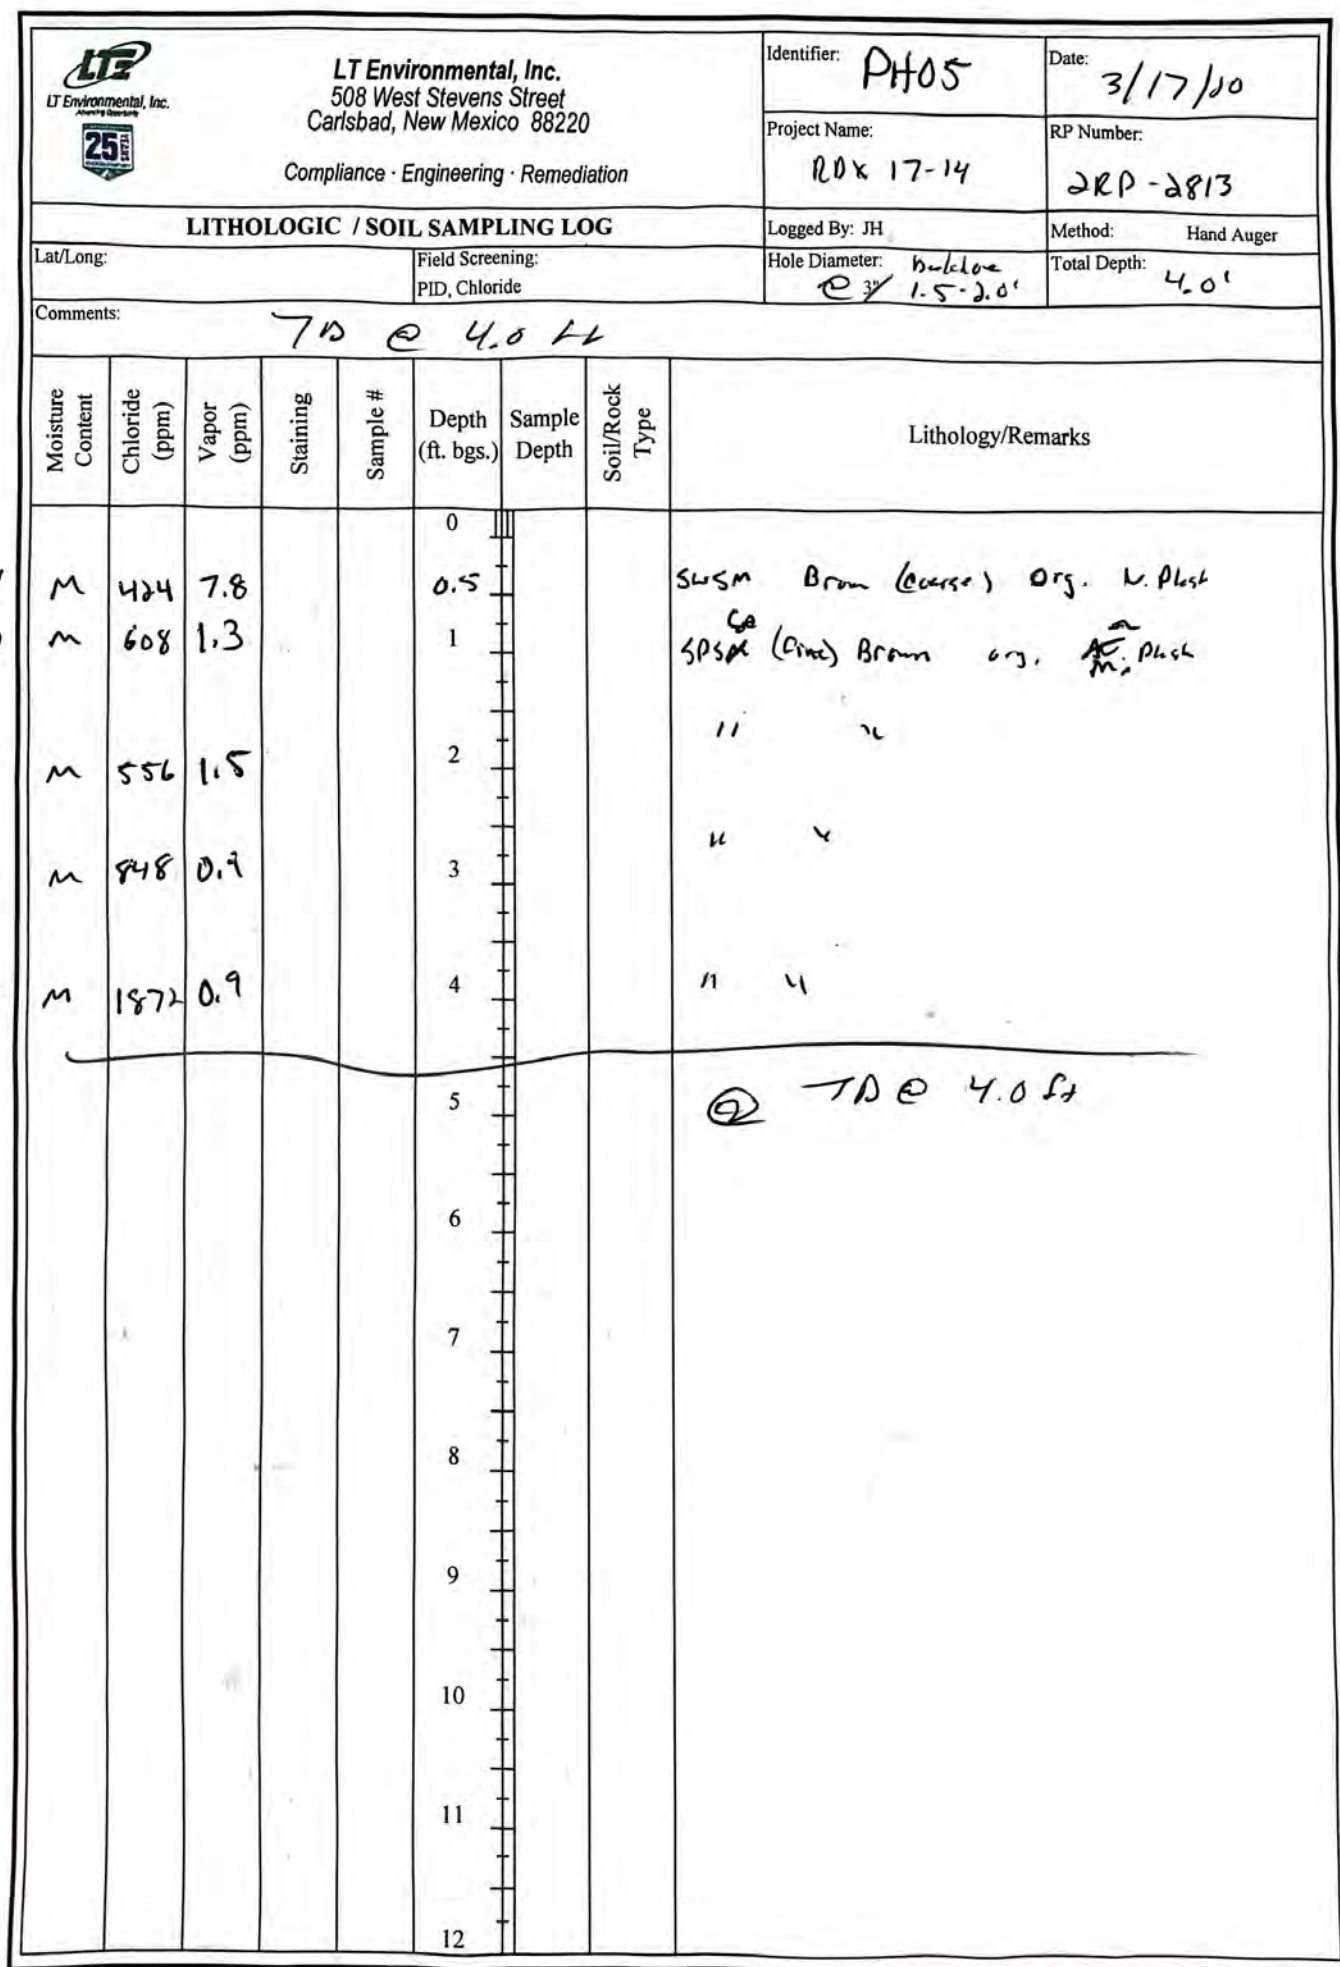 LTE
LT Environmental, Inc.
Advancing Opportunity
25 YEARS
LT Environmental, Inc.
508 West Stevens Street
Carlsbad, New Mexico 88220
Compliance · Engineering · Remediation
Identifier: PH05
Date: 3/17/20
Project Name: RDX 17-14
RP Number: 2RP-2813
LITHOLOGIC / SOIL SAMPLING LOG
Logged By: JH
Method: Hand Auger
Lat/Long:
Field Screening:
PID, Chloride
Hole Diameter: backhoe
@ 3" 1.5-2.0'
Total Depth: 4.0'
Comments: TD @ 4.0 ft
Moisture Content
Chloride (ppm)
Vapor (ppm)
Staining
Sample #
Depth (ft. bgs.)
Sample Depth
Soil/Rock Type
Lithology/Remarks
0
M 424 7.8 0.5 SWSM Brown (coarse) Org. N. Plast
M 608 1.3 1 SPSC (Fine) Brown org. M. Plast
" "
M 556 1.5 2
" "
M 848 0.9 3
M 1872 0.9 4 " "
5 TD @ 4.0 ft
6
7
8
9
10
11
12